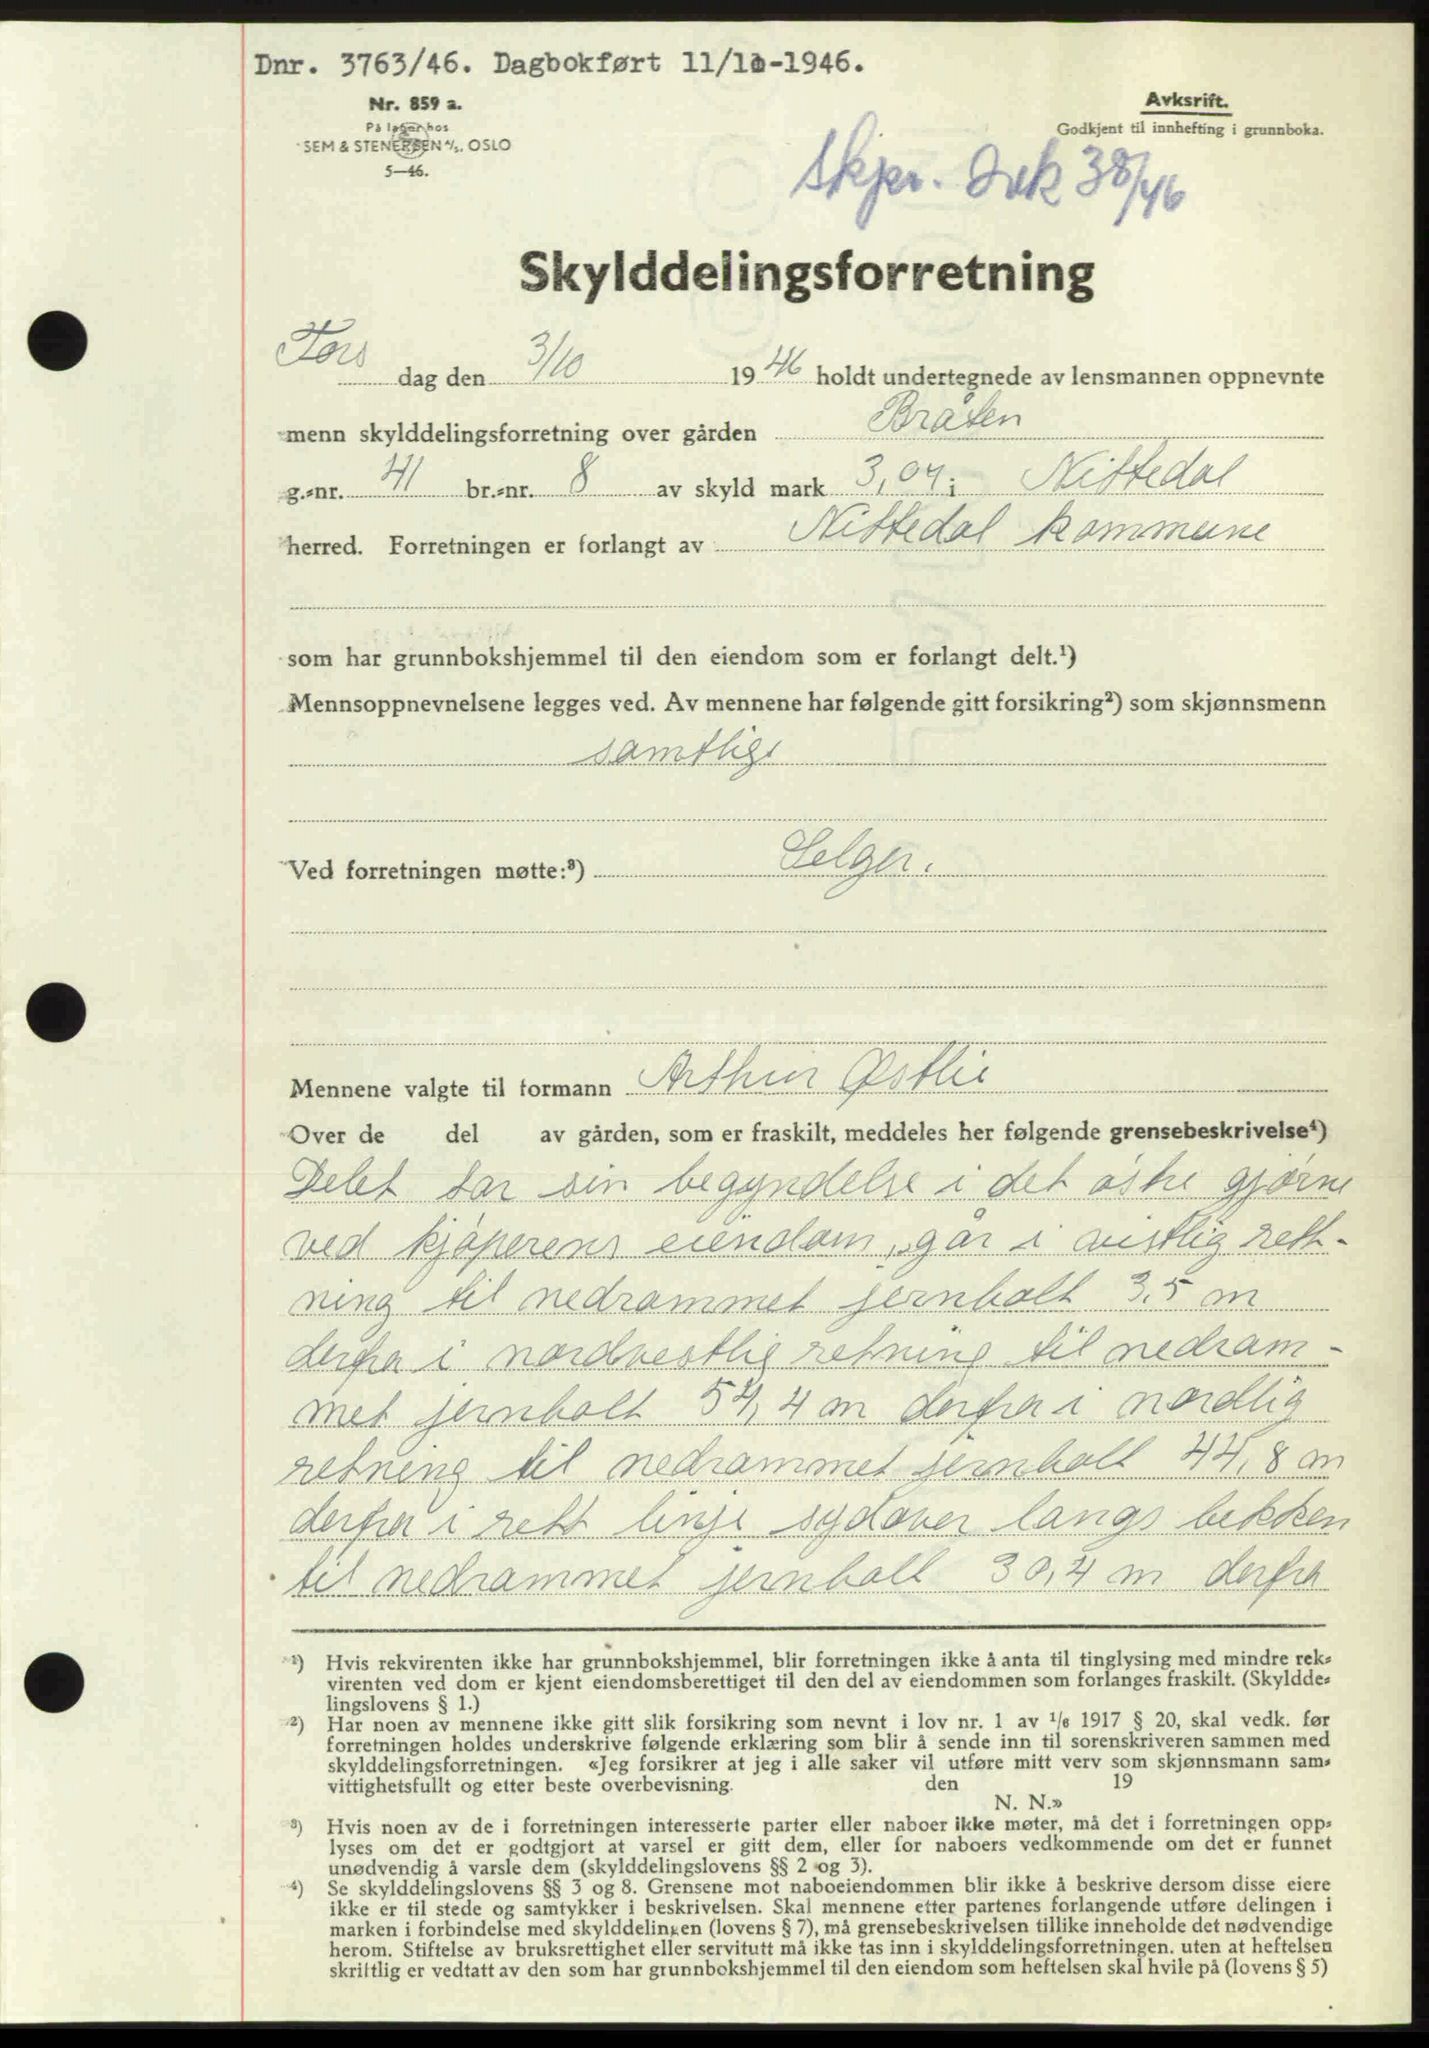 Dnr. 3763/46. Dagbokført 11/10-1946.
Nr. 859 a.
På lager hos
SEM & STENERSEN A/S, OSLO
5—46.
Avksrift.
Godkjent til innhefting i grunnboka.
Skjer. 38/46
Skylddelingsforretning
Tors dag den 3/10 1946 holdt undertegnede av lensmannen oppnevnte
menn skylddelingsforretning over gården Bråten
g.-nr. 41 br.-nr. 8 av skyld mark 3,04 i Nittedal
herred. Forretningen er forlangt av Nittedal kommune
som har grunnbokshjemmel til den eiendom som er forlangt delt.¹)
Mennsoppnevnelsene legges ved. Av mennene har følgende gitt forsikring²) som skjønnsmenn
samtlige
Ved forretningen møtte:³) Selger.
Mennene valgte til formann Arthur Østlie
Over de del av gården, som er fraskilt, meddeles her følgende grensebeskrivelse⁴)
Delet tar sin begyndelse i det østre gjørne
ved kjøperens eiendom, går i vistlig rett-
ning til nedrammet jernbolt 3,5 m
derfra i nordvestlig retning til nedram-
met jernbolt 54,4 m derfra i nordlig
retning til nedrammet jernbolt 44,8 m
derfra i rett linje sydover langs bekken
til nedrammet jernbolt 30,4 m derfra
¹) Hvis rekvirenten ikke har grunnbokshjemmel, blir forretningen ikke å anta til tinglysing med mindre rek-
virenten ved dom er kjent eiendomsberettiget til den del av eiendommen som forlanges fraskilt. (Skyldde-
lingslovens § 1.)
²) Har noen av mennene ikke gitt slik forsikring som nevnt i lov nr. 1 av 1/6 1917 § 20, skal vedk. før
forretningen holdes underskrive følgende erklæring som blir å sende inn til sorenskriveren sammen med
skylddelingsforretningen. «Jeg forsikrer at jeg i alle saker vil utføre mitt verv som skjønnsmann sam-
vittighetsfullt og etter beste overbevisning. den 19
N. N.»
³) Hvis noen av de i forretningen interesserte parter eller naboer ikke møter, må det i forretningen opp-
lyses om det er godtgjort at varsel er gitt dem, eller for naboers vedkommende om det er funnet
unødvendig å varsle dem (skylddelingslovens §§ 2 og 3).
⁴) Se skylddelingslovens §§ 3 og 8. Grensene mot naboeiendommen blir ikke å beskrive dersom disse eiere
ikke er til stede og samtykker i beskrivelsen. Skal mennene etter partenes forlangende utføre delingen i
marken i forbindelse med skylddelingen (lovens § 7), må grensebeskrivelsen tillike inneholde det nødvendige
herom. Stiftelse av bruksrettighet eller servitutt må ikke tas inn i skylddelingsforretningen, uten at heftelsen
skriftlig er vedtatt av den som har grunnbokshjemmel til den eiendom som heftelsen skal hvile på (lovens § 5)